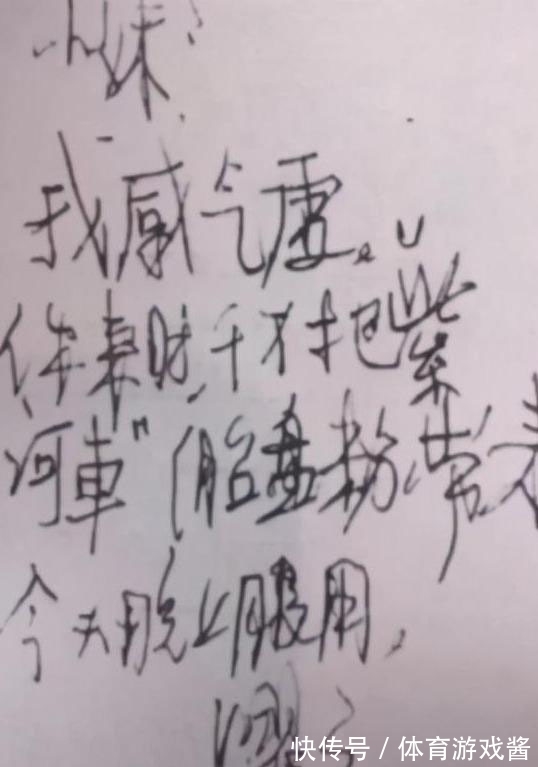 小妹:
我感气虚。
你来时,千万把"紫
河車"(胎盘粉)带来
今天晚上服用,
快传号/体育游戏酱